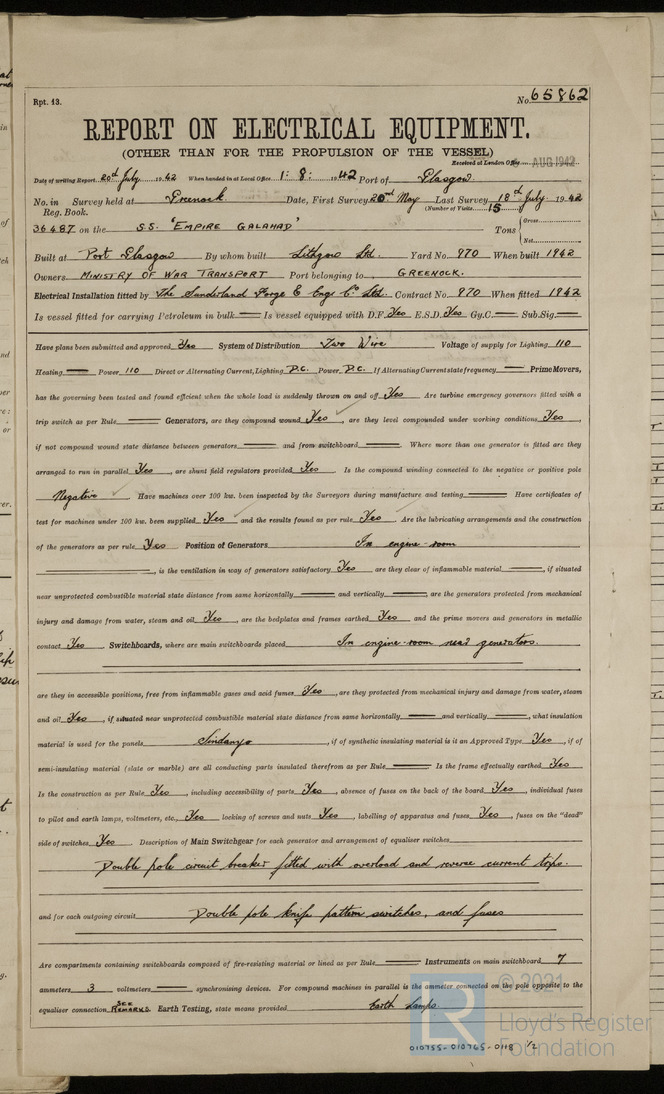 Rpt. 13.
No. 65862
REPORT ON ELECTRICAL EQUIPMENT.
(OTHER THAN FOR THE PROPULSION OF THE VESSEL)
Received at London Office AUG 1942
Date of writing Report 20th July 1942 When handed in at Local Office 1: 8: 1942 Port of Glasgow
No. in Survey held at Greenock Date, First Survey 20th May Last Survey 18th July 1942
Reg. Book. (Number of Visits 15
36487 on the S.S. "EMPIRE GALAHAD" Tons Gross
Net
Built at Port Glasgow By whom built Lithgow Ltd. Yard No. 970 When built 1942
Owners MINISTRY OF WAR TRANSPORT Port belonging to GREENOCK.
Electrical Installation fitted by The Sunderland Forge & Engg Co. Ltd. Contract No. 970 When fitted 1942
Is vessel fitted for carrying Petroleum in bulk — Is vessel equipped with D.F. Yes E.S.D. Yes Gy.C. — Sub.Sig —
Have plans been submitted and approved Yes System of Distribution Two Wire Voltage of supply for Lighting 110
Heating — Power 110 Direct or Alternating Current, Lighting D.C. Power D.C. If Alternating Current state frequency — Prime Movers,
has the governing been tested and found efficient when the whole load is suddenly thrown on and off Yes Are turbine emergency governors fitted with a
trip switch as per Rule — Generators, are they compound wound Yes, are they level compounded under working conditions Yes,
if not compound wound state distance between generators — and from switchboard — Where more than one generator is fitted are they
arranged to run in parallel Yes, are shunt field regulators provided Yes Is the compound winding connected to the negative or positive pole
Negative Have machines over 100 kw. been inspected by the Surveyors during manufacture and testing — Have certificates of
test for machines under 100 kw. been supplied Yes and the results found as per rule Yes Are the lubricating arrangements and the construction
of the generators as per rule Yes Position of Generators In engine-room
—, is the ventilation in way of generators satisfactory Yes are they clear of inflammable material —, if situated
near unprotected combustible material state distance from same horizontally — and vertically —, are the generators protected from mechanical
injury and damage from water, steam and oil Yes, are the bedplates and frames earthed Yes and the prime movers and generators in metallic
contact Yes Switchboards, where are main switchboards placed In engine-room near generators.
are they in accessible positions, free from inflammable gases and acid fumes Yes, are they protected from mechanical injury and damage from water, steam
and oil Yes, if situated near unprotected combustible material state distance from same horizontally — and vertically —, what insulation
material is used for the panels Sindanyo, if of synthetic insulating material is it an Approved Type Yes, if of
semi-insulating material (slate or marble) are all conducting parts insulated therefrom as per Rule — Is the frame effectually earthed Yes
Is the construction as per Rule Yes, including accessibility of parts Yes, absence of fuses on the back of the board Yes, individual fuses
to pilot and earth lamps, voltmeters, etc., Yes locking of screws and nuts Yes, labelling of apparatus and fuses Yes, fuses on the "dead"
side of switches Yes. Description of Main Switchgear for each generator and arrangement of equaliser switches
Double pole circuit breaker fitted with overload and reverse current trips.
and for each outgoing circuit Double pole knife pattern switches, and fuses
Are compartments containing switchboards composed of fire-resisting material or lined as per Rule — Instruments on main switchboard 7
ammeters 3 voltmeters — synchronising devices. For compound machines in parallel is the ammeter connected on the pole opposite to the
equaliser connection SEE REMARKS. Earth Testing, state means provided Earth lamps.
010755-010765-0118 1/2
© 2021
LR
Lloyd's Register
Foundation